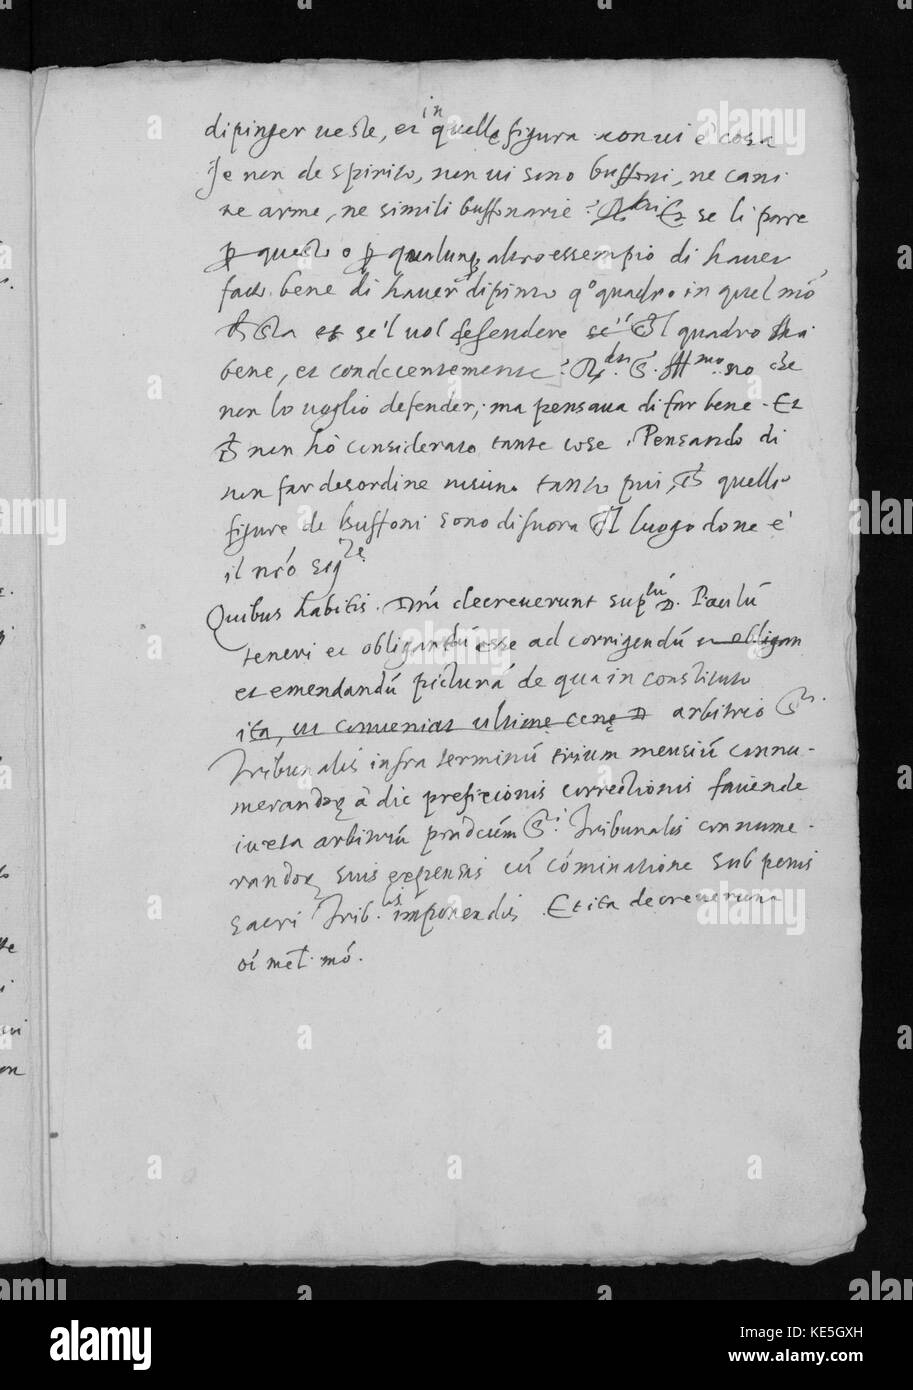 dipinger veste, et in quelle figura non vi è cosa
se non de spirito, non vi sono buffoni, ne cani
ne arme, ne simili buffonarie? Et se li pare
p questo o p qualunq altro essempio di haver
fatto bene di haver dipinto qo quadro in quel mō
sta et se'l vol defendere se il quadro stia
bene, et condecentemente? Rdit. S. Illmo. no che
non lo voglio defender, ma pensava di far bene. Et
non hò considerato tante cose. Pensando di
non far desordine nisuno tanto più, quelle
figure de Buffoni sono di fuora del luogo dove è
il nr̄o Sigre
Quibus habitis. Dñi decreverunt suptū D. Paulū
teneri et obligandū esse ad corrigendū et obligan
et emendandū picturā de qua in constituto
ita, ut conveniat ultime cenę D arbitrio S.
Tribunalis infra terminū trium mensiū connu-
merandoȝ à die prefixionis correctionis faciende
iuxta arbitriū prædictum S.ti Tribunalis connume-
randoȝ suis expensis cū cōminatione sub penis
sacri Trib.lis imponendis. Et ita decreverunt
oī mel. mō.
KE5GXH
alamy